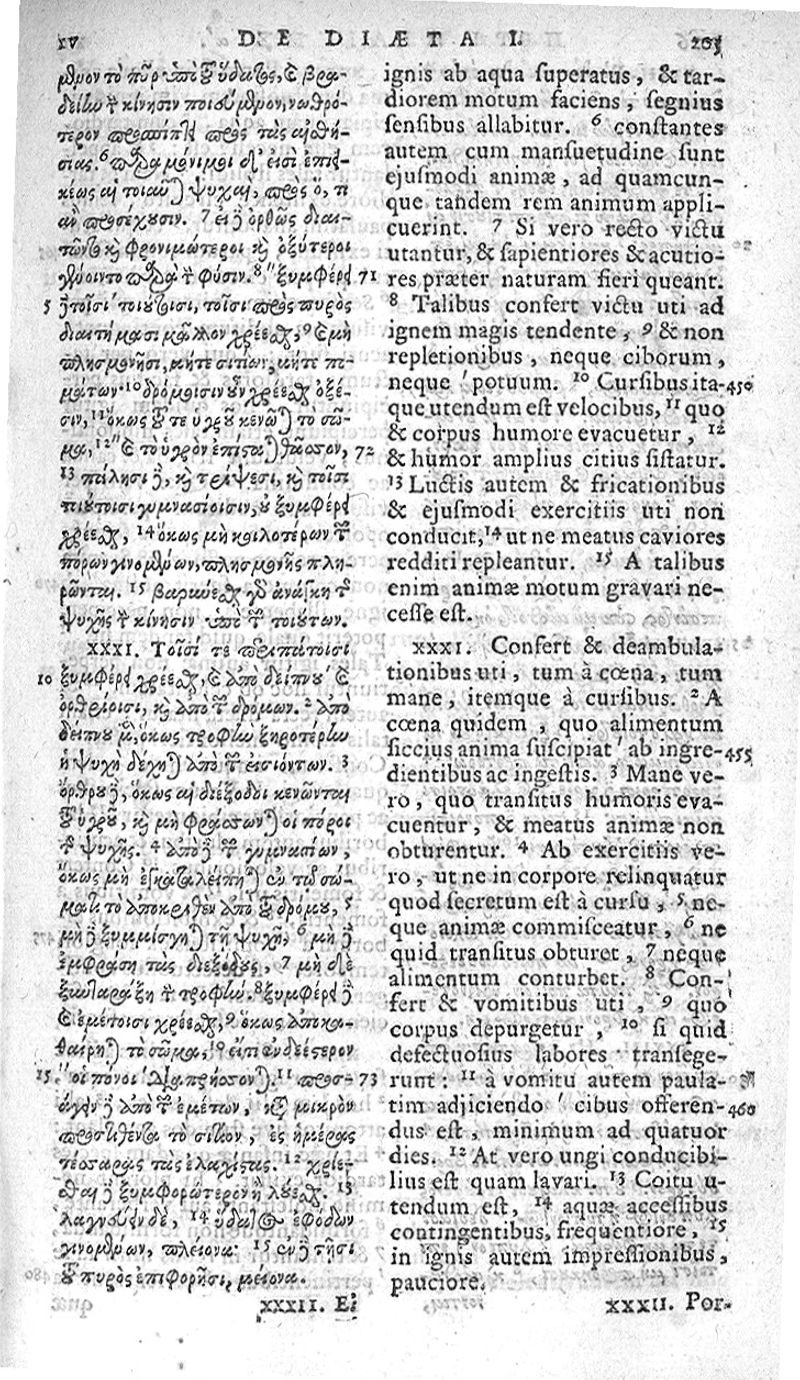 IV DE DIÆTA I. 203
μενον τὸ πῦρ ὑπὸ τοῦ ὕδατος, καὶ βρα-
δείην τὴν κίνησιν ποιούμενον, νωθρό-
τερον προσπίπτει πρὸς τὰς αἰσθή-
σιας. 6 παραμόνιμοι δ' εἰσὶ ἐπιει-
κέως αἱ τοιαῦται ψυχαὶ, πρὸς ὅ, τι
ἂν προσέχουσιν. 7 εἰ δὲ ὀρθῶς διαι-
τῶντο καὶ φρονιμώτεροι καὶ ὀξύτεροι
γένοιντο παρὰ τὴν φύσιν. 8 " ξυμφέρει 71
5 δὲ τοῖσι τοιούτοισι, τοῖσι πρὸς πυρὸς
διαιτήμασι μᾶλλον χρέεσθαι, 9 καὶ μὴ
πλησμονῇσι, μήτε σιτίων, μήτε πο-
μάτων. 10 δρόμοισιν οὖν χρέεσθαι ὀξέ-
σιν, 11 ὅκως τοῦ τε ὑγροῦ κενῶται τὸ σῶ-
μα, 12 " καὶ τὸ ὑγρὸν ἐπίσταται θᾶσσον, 72
13 πάλησι δὲ, καὶ τρίψεσι, καὶ τοῖσι
τοιούτοισι γυμνασίοισιν, οὐ ξυμφέρει
χρέεσθαι, 14 ὅκως μὴ κοιλοτέρων τῶν
πόρων γινομένων, πλησμονῆς πλη-
ρῶνται. 15 βαρύνεσθαι γὰρ ἀνάγκη τῆς
ψυχῆς τὴν κίνησιν ὑπὸ τῶν τοιούτων.
XXXI. Τοῖσί τε περιπάτοισι
10 ξυμφέρει χρέεσθαι, καὶ ἀπὸ δείπνου καὶ
ὀρθρίοισι, καὶ ἀπὸ τῶν δρόμων. 2 ἀπὸ
δείπνου μὲν, ὅκως τροφὴν ξηροτέρην
ἡ ψυχὴ δέχηται ἀπὸ τῶν εἰσιόντων. 3
ὄρθρου δὲ, ὅκως αἱ διέξοδοι κενῶνται
τοῦ ὑγροῦ, καὶ μὴ φράσσωνται οἱ πόροι
τῆς ψυχῆς. 4 ἀπὸ δὲ τῶν γυμνασίων,
ὅκως μὴ ἐγκαταλείπηται ἐν τῷ σώ-
ματι τὸ ἀποκριθὲν ἀπὸ τοῦ δρόμου, 5
μὴ δὲ ξυμμίσγηται τῇ ψυχῇ, 6 μὴ δὲ
ἐμφράσῃ τὰς διεξόδους, 7 μὴ δὲ
ξυνταράξῃ τὴν τροφήν. 8 ξυμφέρει δὲ
καὶ ἐμέτοισι χρέεσθαι, 9 ὅκως ἀποκα-
θαίρηται τὸ σῶμα, 10 εἴ τι ἐνδεέστερον
15. " οἱ πόνοι διαπρήσσονται. 11 προσ- 73
άγειν δὲ ἀπὸ τῶν ἐμέτων, κατὰ μικρὸν
προστιθέντα τὸ σιτίον, ἐς ἡμέρας
τέσσαρας τὰς ἐλαχίστας. 12 χρίεσ-
θαι δὲ ξυμφορώτερον ἢ λούεσθαι. 13
λαγνεύειν δὲ, 14 ὕδατος ἐφόδων
γινομένων, πλείονα· 15 ἐν δὲ τῇσι
τοῦ πυρὸς ἐπιφορῇσι, μείονα.
XXXII. Εἰ
ignis ab aqua superatus, & tar-
diorem motum faciens, segnius
sensibus allabitur. 6 constantes
autem cum mansuetudine sunt
ejusmodi animæ, ad quamcun-
que tandem rem animum appli-
cuerint. 7 Si vero recto victu
utantur, & sapientiores & acutio-
res præter naturam fieri queant.
8 Talibus confert victu uti ad
ignem magis tendente, 9 & non
repletionibus, neque ciborum,
neque potuum. 10 Cursibus ita- 450
que utendum est velocibus, 11 quo
& corpus humore evacuetur, 12
& humor amplius citius sistatur.
13 Luctis autem & fricationibus
& ejusmodi exercitiis uti non
conducit, 14 ut ne meatus caviores
redditi repleantur. 15 A talibus
enim animæ motum gravari ne-
cesse est.
XXXI. Confert & deambula-
tionibus uti, tum à cœna, tum
mane, itemque à cursibus. 2 A
cœna quidem, quo alimentum
siccius anima suscipiat ab ingre- 455
dientibus ac ingestis. 3 Mane ve-
ro, quo transitus humoris eva-
cuentur, & meatus animæ non
obturentur. 4 Ab exercitiis ve-
ro, ut ne in corpore relinquatur
quod secretum est à cursu, 5 ne-
que animæ commisceatur, 6 ne
quid transitus obturet, 7 neque
alimentum conturbet. 8 Con-
fert & vomitibus uti, 9 quo
corpus depurgetur, 10 si quid
defectuosius labores transege-
runt: 11 à vomitu autem paula-
tim adjiciendo cibus offeren- 460
dus est, minimum ad quatuor
dies. 12 At vero ungi conducibi-
lius est quam lavari. 13 Coitu u-
tendum est, 14 aquæ accessibus
contingentibus, frequentiore, 15
in ignis autem impressionibus,
pauciore.
XXXII. Por-